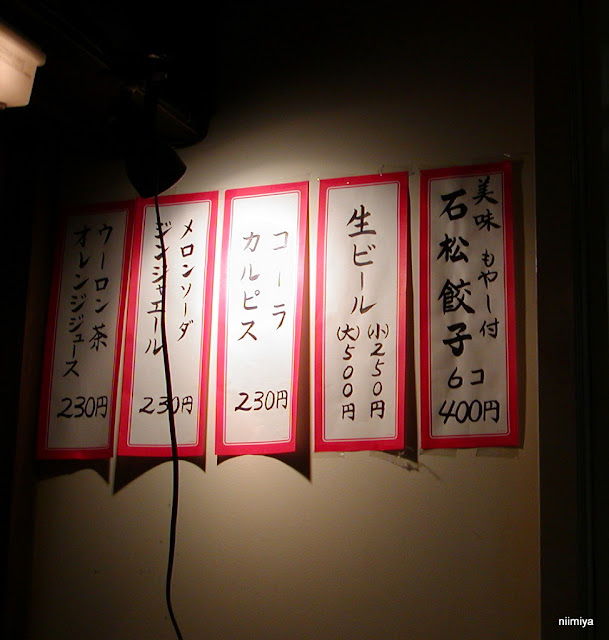 美味 もやし付
石松餃子
6コ
400円
生ビール
(小)250円
(大)500円
コーラ
カルピス
230円
メロンソーダ
ジンジャエール
230円
ウーロン茶
オレンジジュース
230円
niimiya